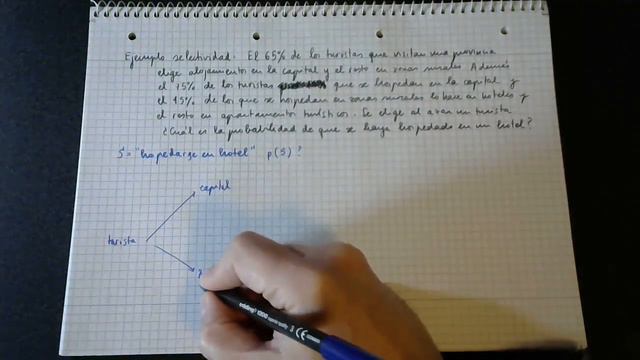 Ejemplo selectividad. El 65% de los turistas que visitan una provincia
elige alojamiento en la capital y el resto en zonas rurales. Además
el 75% de los turistas que se hospedan en la capital y
el 45% de los que se hospedan en zonas rurales lo hace en hoteles y
el resto en apartamentos turísticos. Se elige al azar un turista
¿Cuál es la probabilidad de que se haya hospedado en un hotel?
S = "hospedarse en hotel" p(S)?
capital
turista
edding 1200
CE